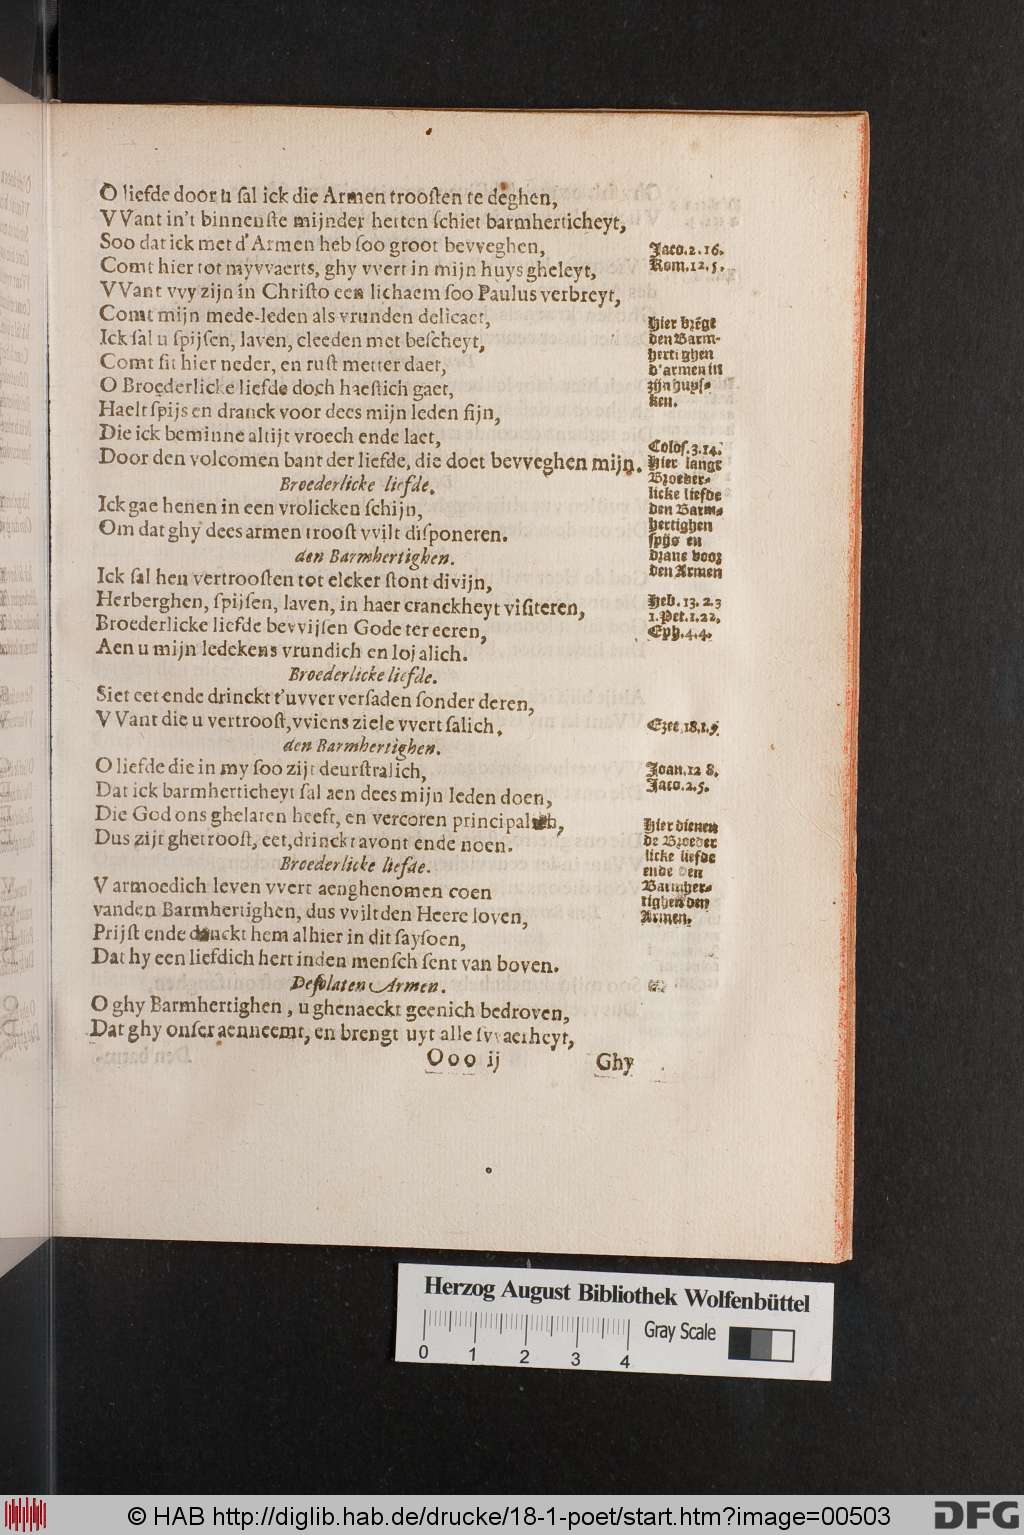 O liefde door u sal ick die Armen troosten te deghen,
VVant in't binnenste mijnder herten schiet barmherticheyt,
Soo dat ick met d'Armen heb soo groot bevveghen,
Comt hier tot myvvaerts, ghy vvert in mijn huys gheleyt,
VVant vvy zijn in Christo een lichaem soo Paulus verbreyt,
Comt mijn mede-leden als vrunden delicaet,
Ick sal u spijsen, laven, cleeden met bescheyt,
Comt sit hier neder, en rust metter daet,
O Broederlicke liefde doch haestich gaet,
Haelt spijs en dranck voor dees mijn leden fijn,
Die ick beminne altijt vroech ende laet,
Door den volcomen bant der liefde, die doet bevveghen mijn.
Broederlicke liefde.
Ick gae henen in een vrolicken schijn,
Om dat ghy dees armen troost vvilt disponeren.
den Barmhertighen.
Ick sal hen vertroosten tot elcker stont divijn,
Herberghen, spijsen, laven, in haer cranckheyt visiteren,
Broederlicke liefde bevvijsen Gode ter eeren,
Aen u mijn ledekens vrundich en lojalich.
Broederlicke liefde.
Siet eet ende drinckt t'uvver versaden sonder deren,
VVant die u vertroost, vviens ziele vvert salich.
den Barmhertighen.
O liefde die in my soo zijt deurstralich,
Dat ick barmherticheyt sal aen dees mijn leden doen,
Die God ons ghelaten heeft, en vercoren principalich,
Dus zijt ghetroost, eet, drinckt avont ende noen.
Broederlicke liefde.
V armoedich leven vvert aenghenomen coen
vanden Barmhertighen, dus vvilt den Heere loven,
Prijst ende danckt hem alhier in dit saysoen,
Dat hy een liefdich hert inden mensch sent van boven.
Desolaten Armen.
O ghy Barmhertighen, u ghenaeckt geenich bedroven,
Dat ghy onser aenneemt, en brengt uyt alle svvaerheyt,
Ooo ij
Ghy
Jaco.2.16.
Rom.12.5.
Hier brēgt
den Barm-
hertighen
d'armen in
zijn huys-
ken.
Colos.3.14.
Hier langt
Broeder-
licke liefde
den Barm-
hertighen
spijs en
dranc voor
den Armen
Heb. 13. 2.3
1.Pet.1.22.
Eph.4.4.
Ezec.18.1.9.
Joan.12 8.
Jaco.2.5.
Hier dienen
de Broeder
licke liefde
ende den
Barmher-
tighen den
Armen.
Herzog August Bibliothek Wolfenbüttel
Gray Scale
0 1 2 3 4
© HAB http://diglib.hab.de/drucke/18-1-poet/start.htm?image=00503
DFG